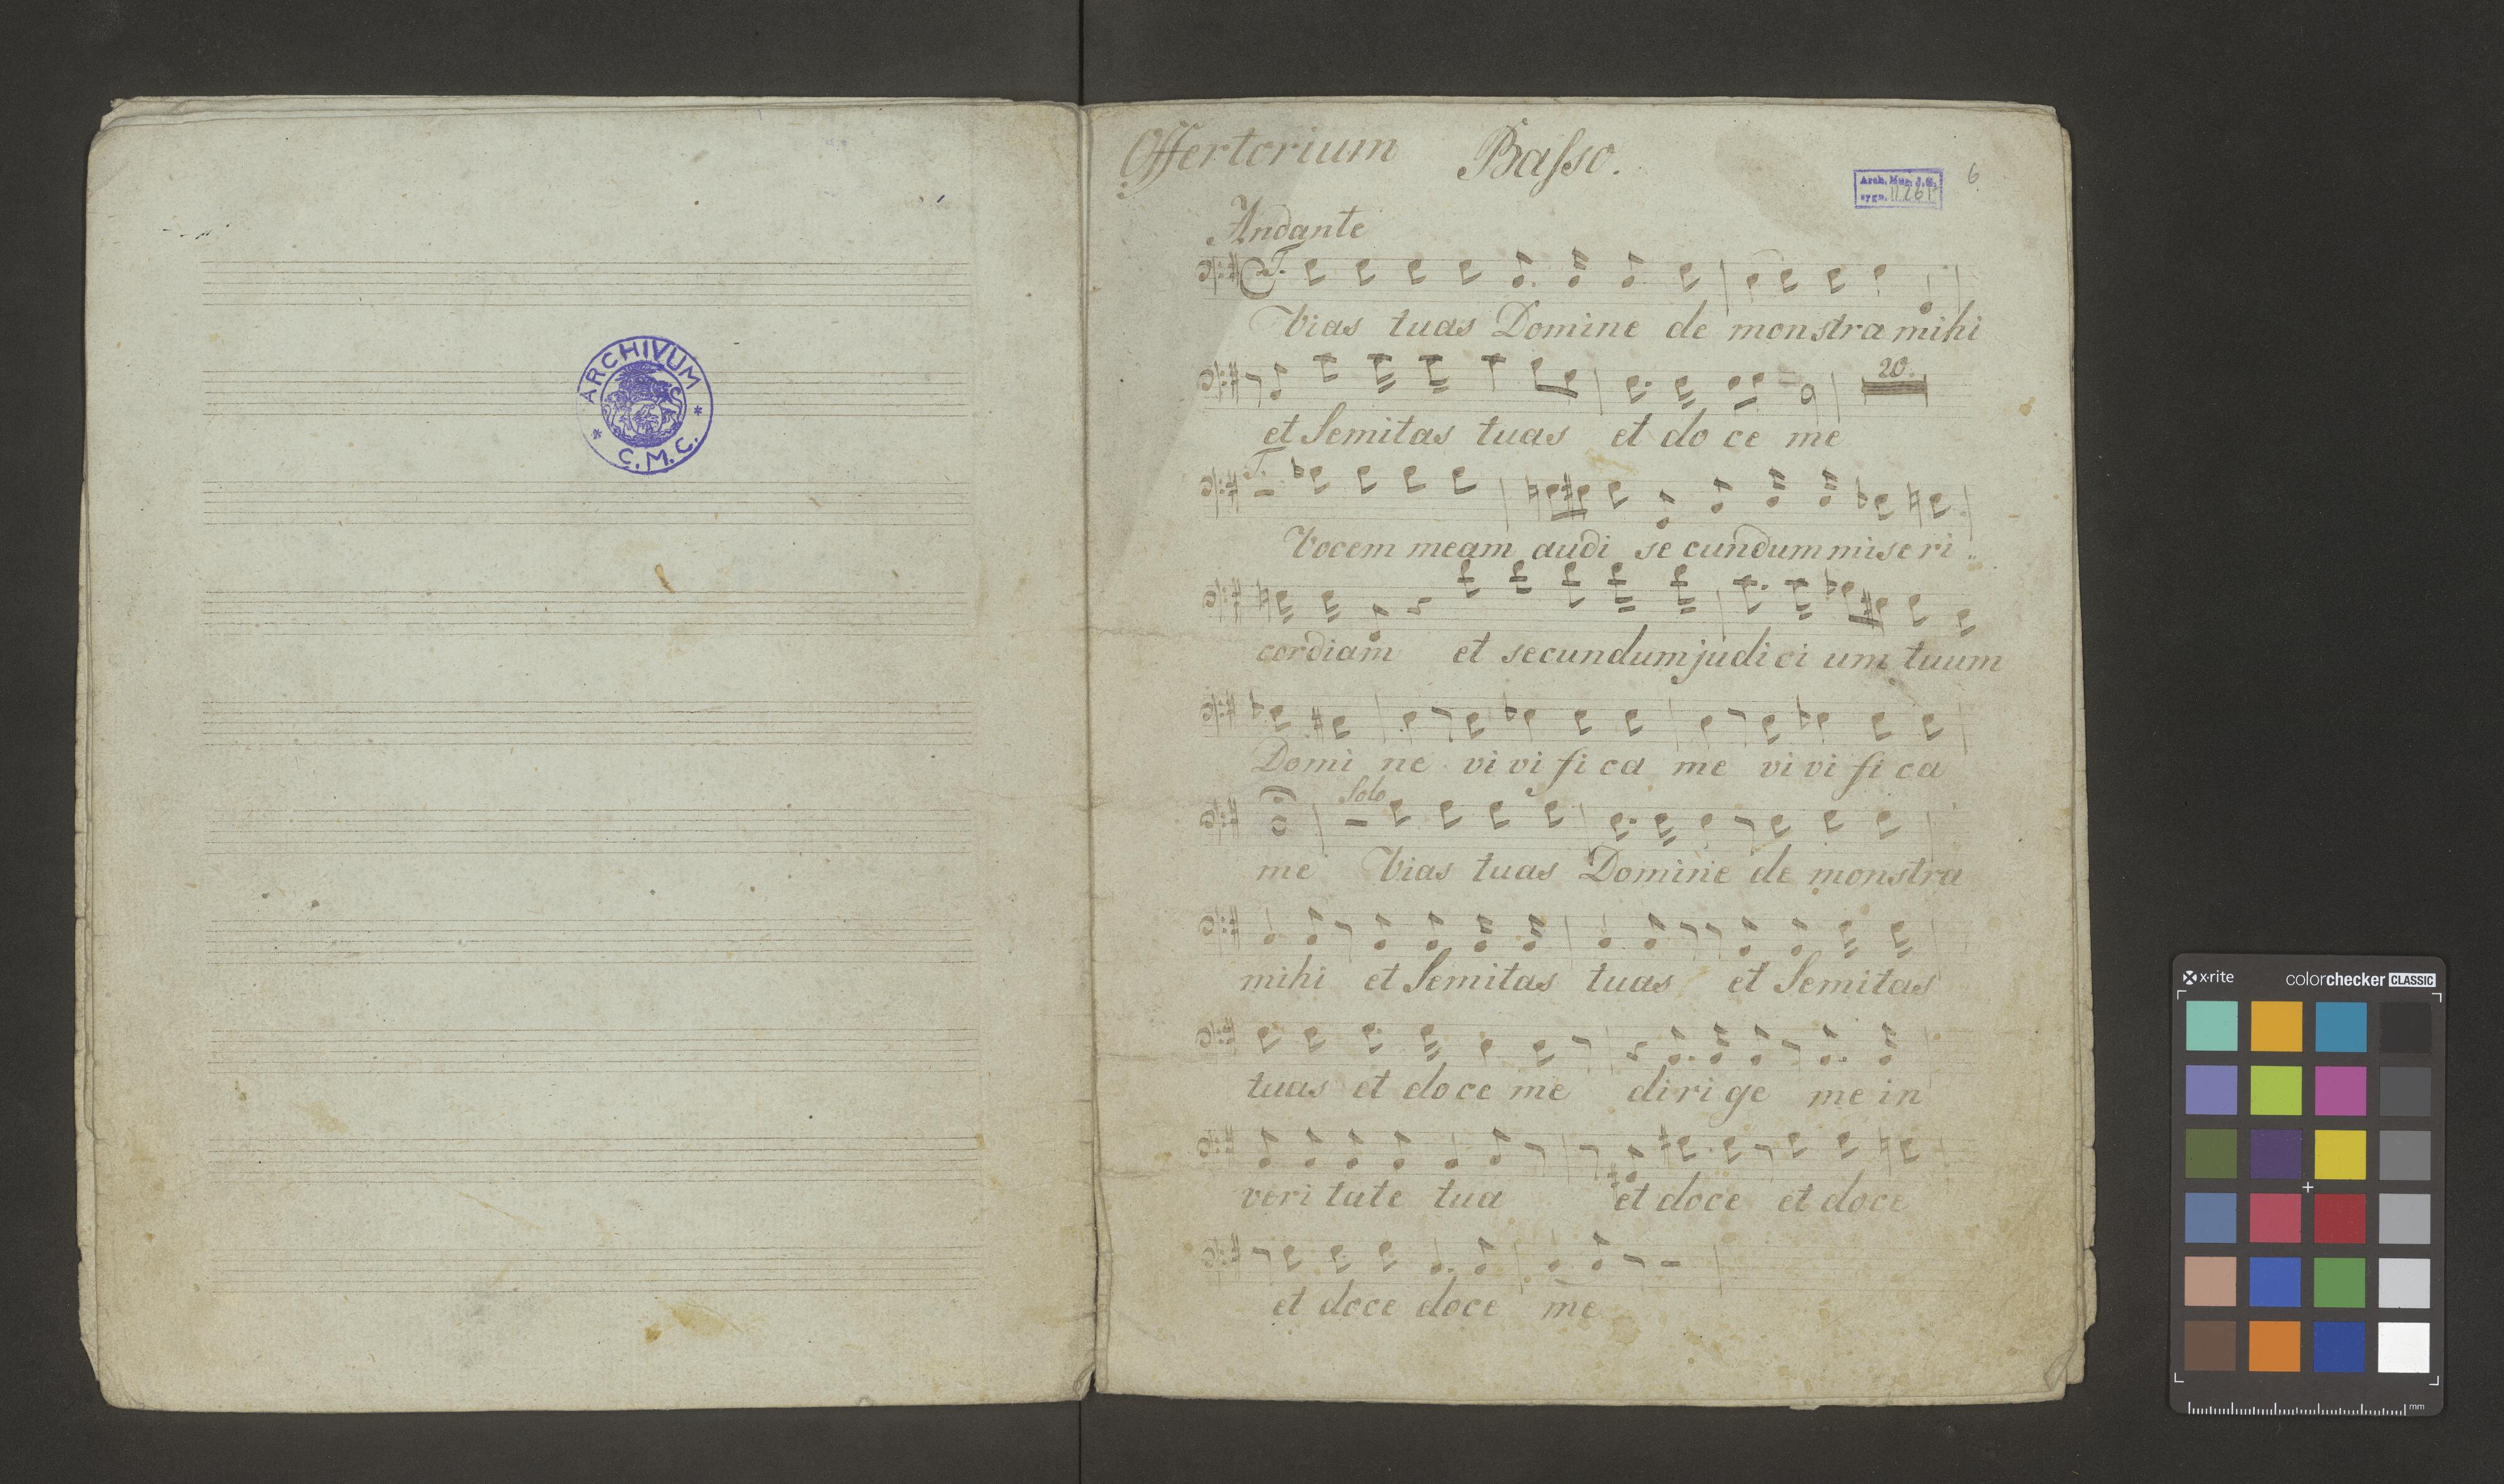 ARCHIVUM
* C.M.C. *
Offertorium Baſso.
Arch. Muz. J. G.
sygn. II 261
6
Andante
T.
Vias tuas Domine de monstra mihi
20.
et Semitas tuas et do ce me
T.
Vocem meam audi se cundum miseri
cordiam et secundum judici um tuum
Domi ne vi vi fi ca me vi vi fi ca
Solo
me Vias tuas Domine de monstra
mihi et Semitas tuas et Semitas
tuas et doce me dirige me in
veri tate tua et doce et doce
et doce doce me
x-rite colorchecker CLASSIC
mm